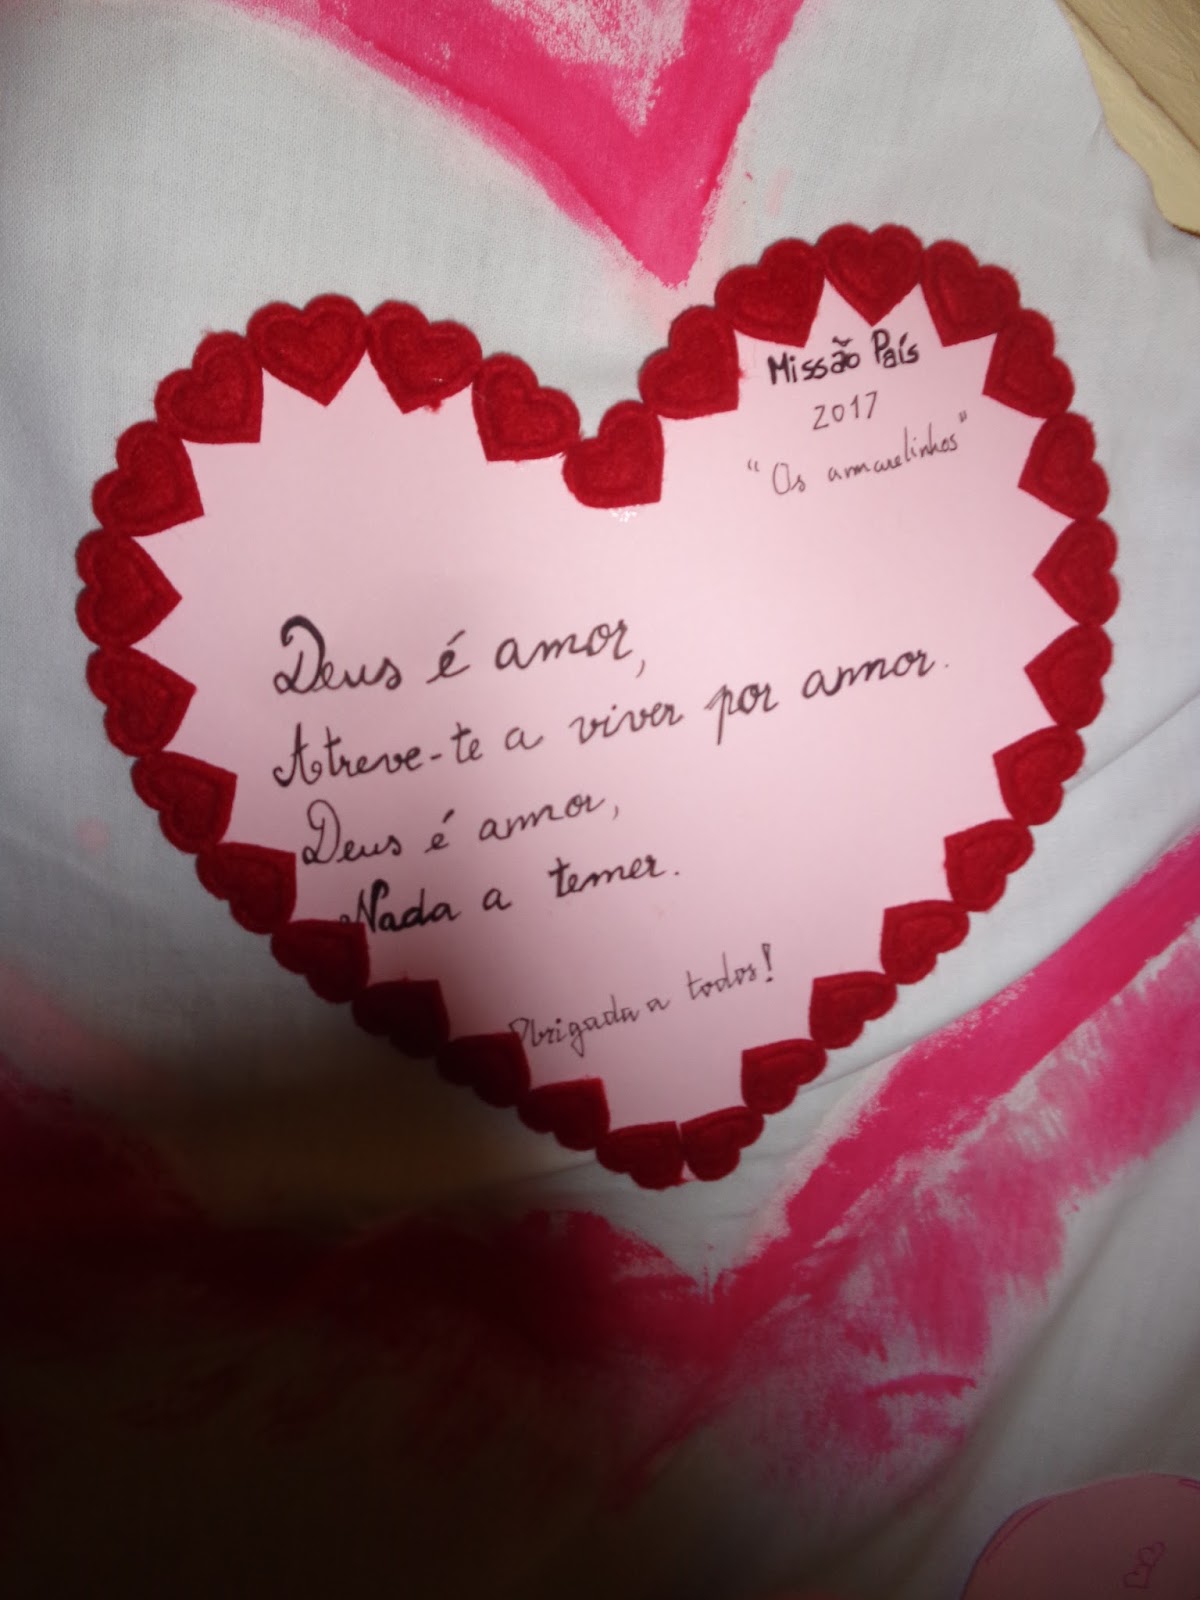 Missão País
2017
"Os amarelinhos"
Deus é amor,
Atreve-te a viver por amor.
Deus é amor,
Nada a temer.
Obrigada a todos!